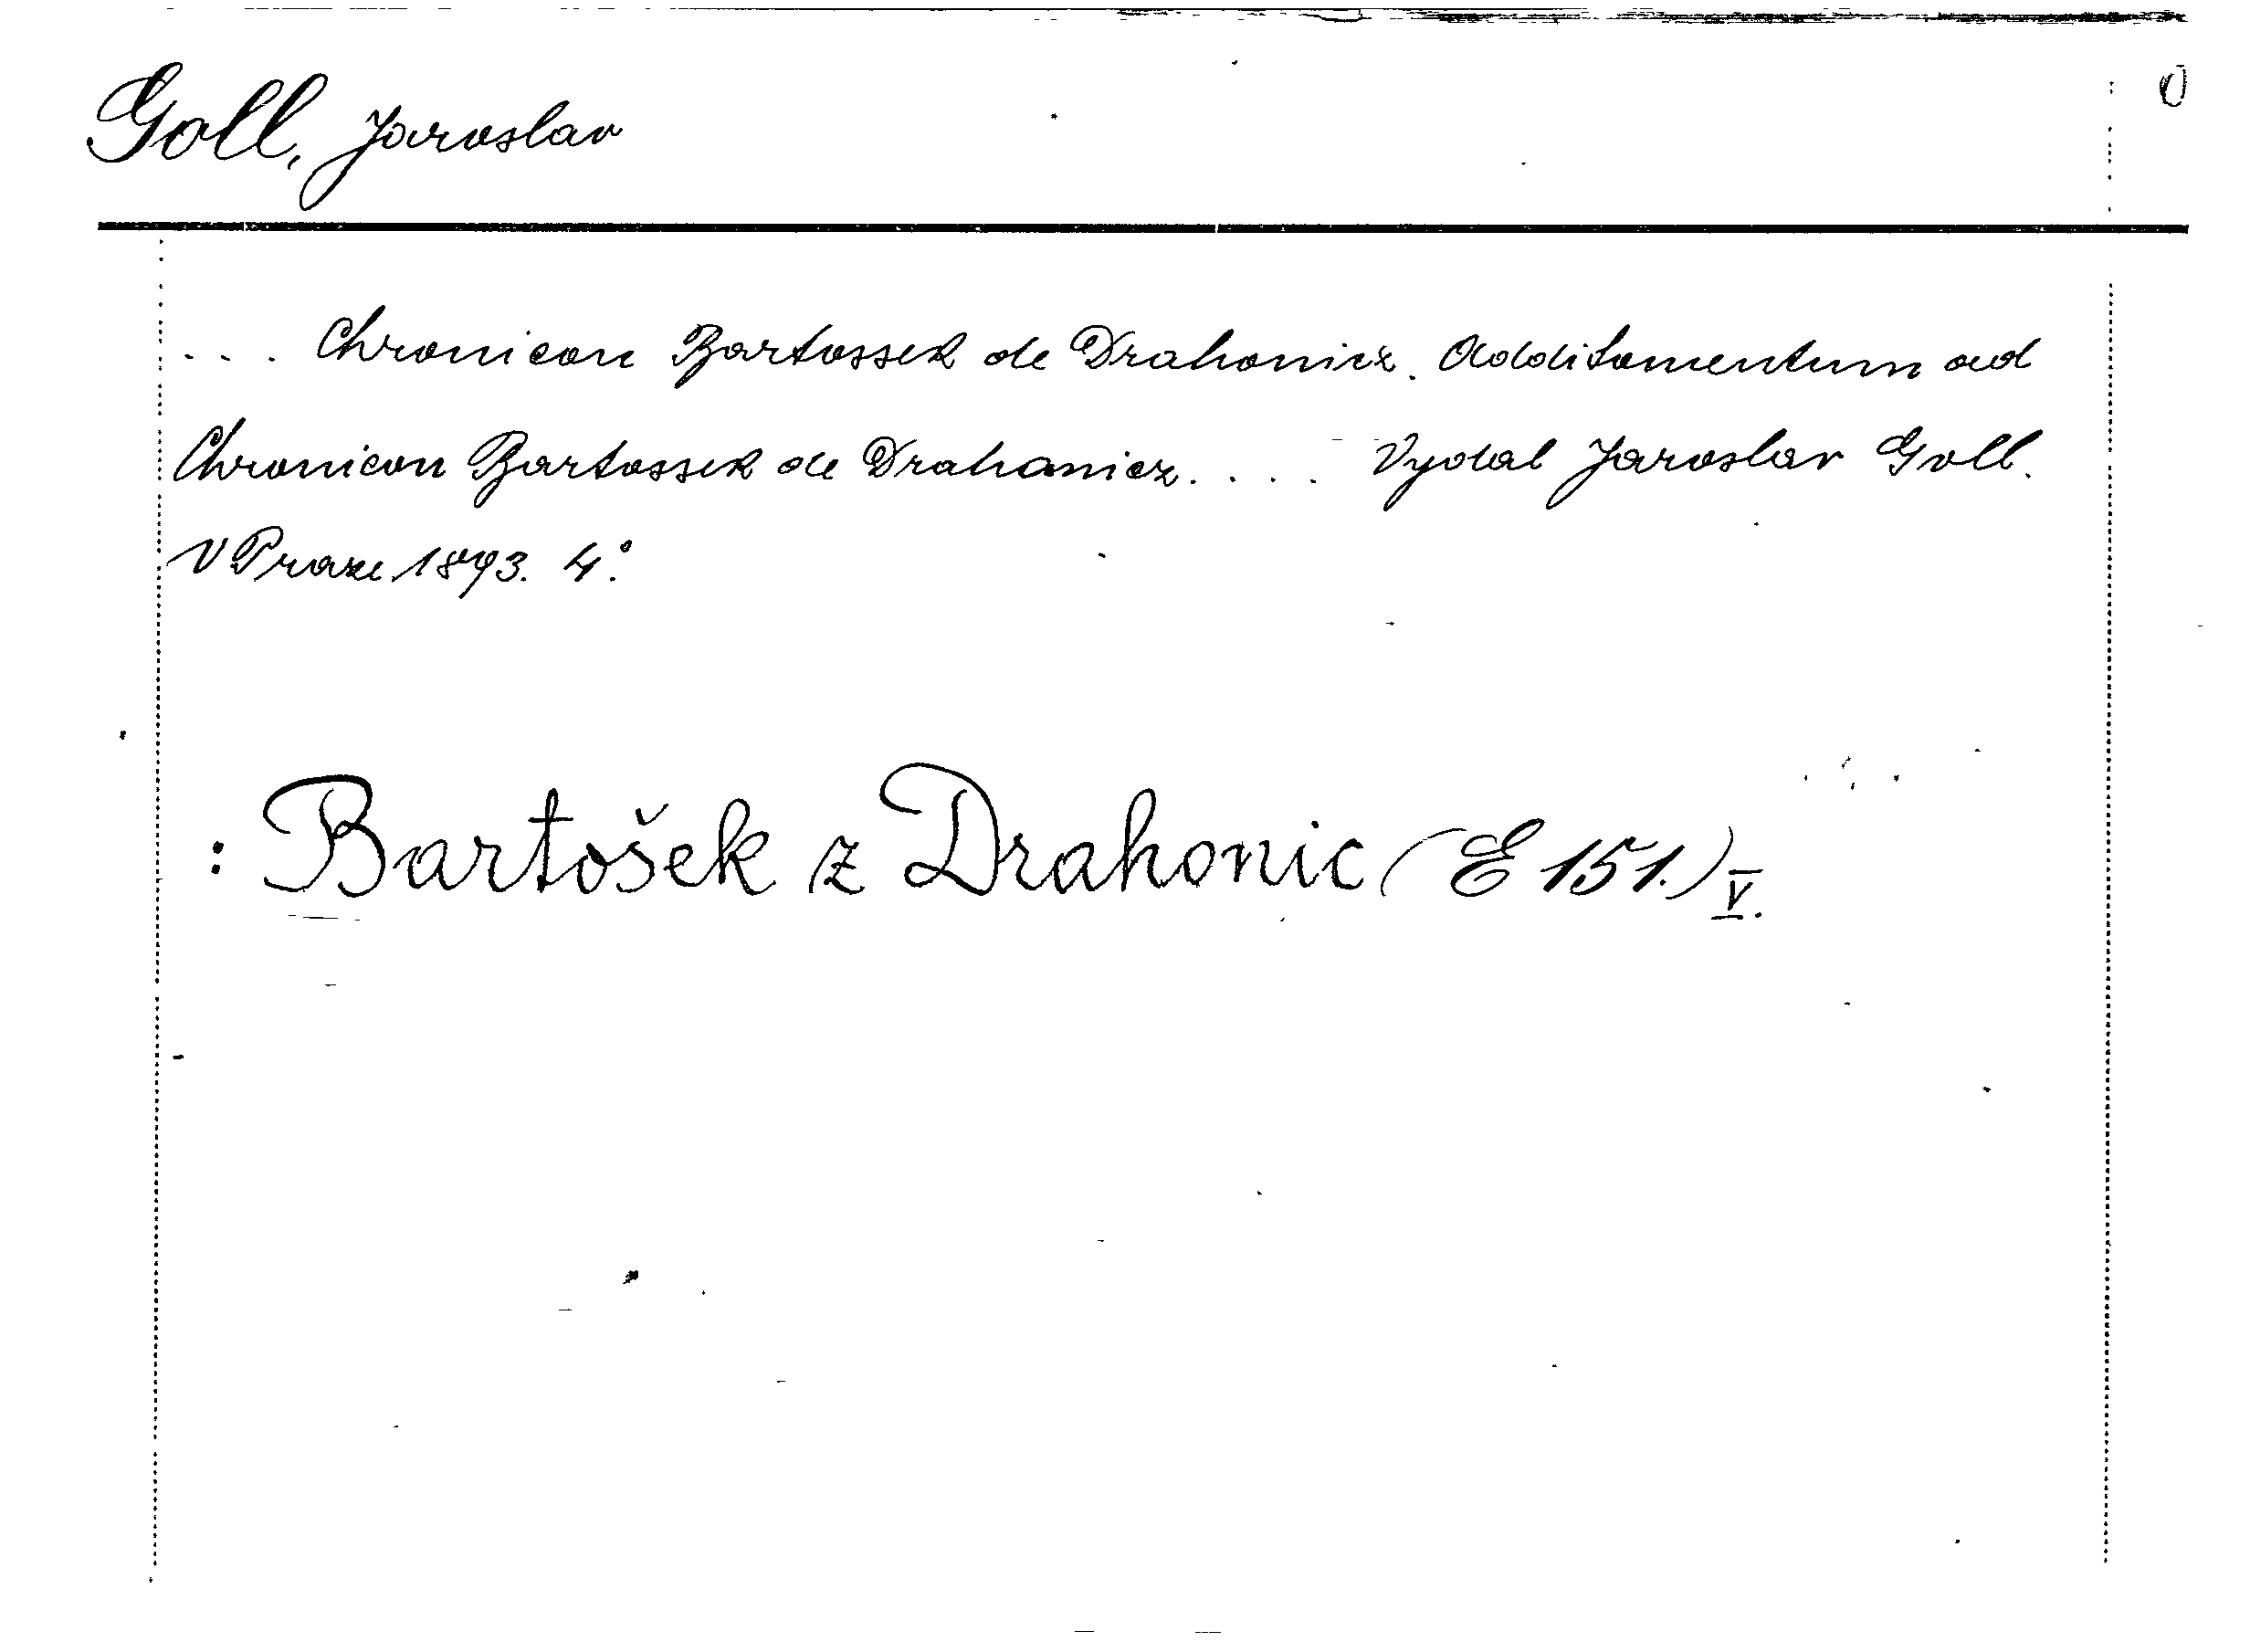 Goll, Jaroslav
... Chronicon Bartossek de Drahonicz. Additamentum ad
Chronicon Bartossek de Drahonicz.... Vydal Jaroslav Goll.
V Praze 1893. 4°.
: Bartošek z Drahonic (E 151.) V.